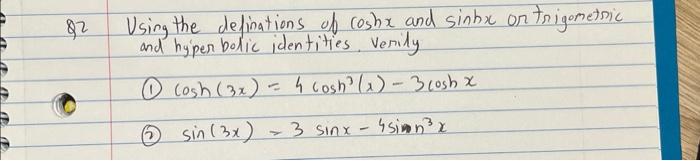 Q2 Using the definations of coshx and sinhx or trigometric
and hyperbolic identities. Verify
① cosh(3x) = 4 cosh³(x) - 3 cosh x
② sin(3x) - 3 sinx - 4sin³x